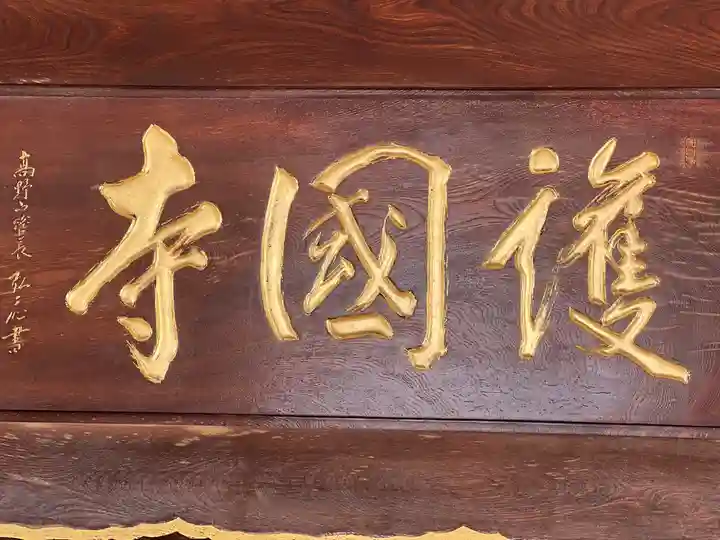 護國寺
高野山管長 弘元書